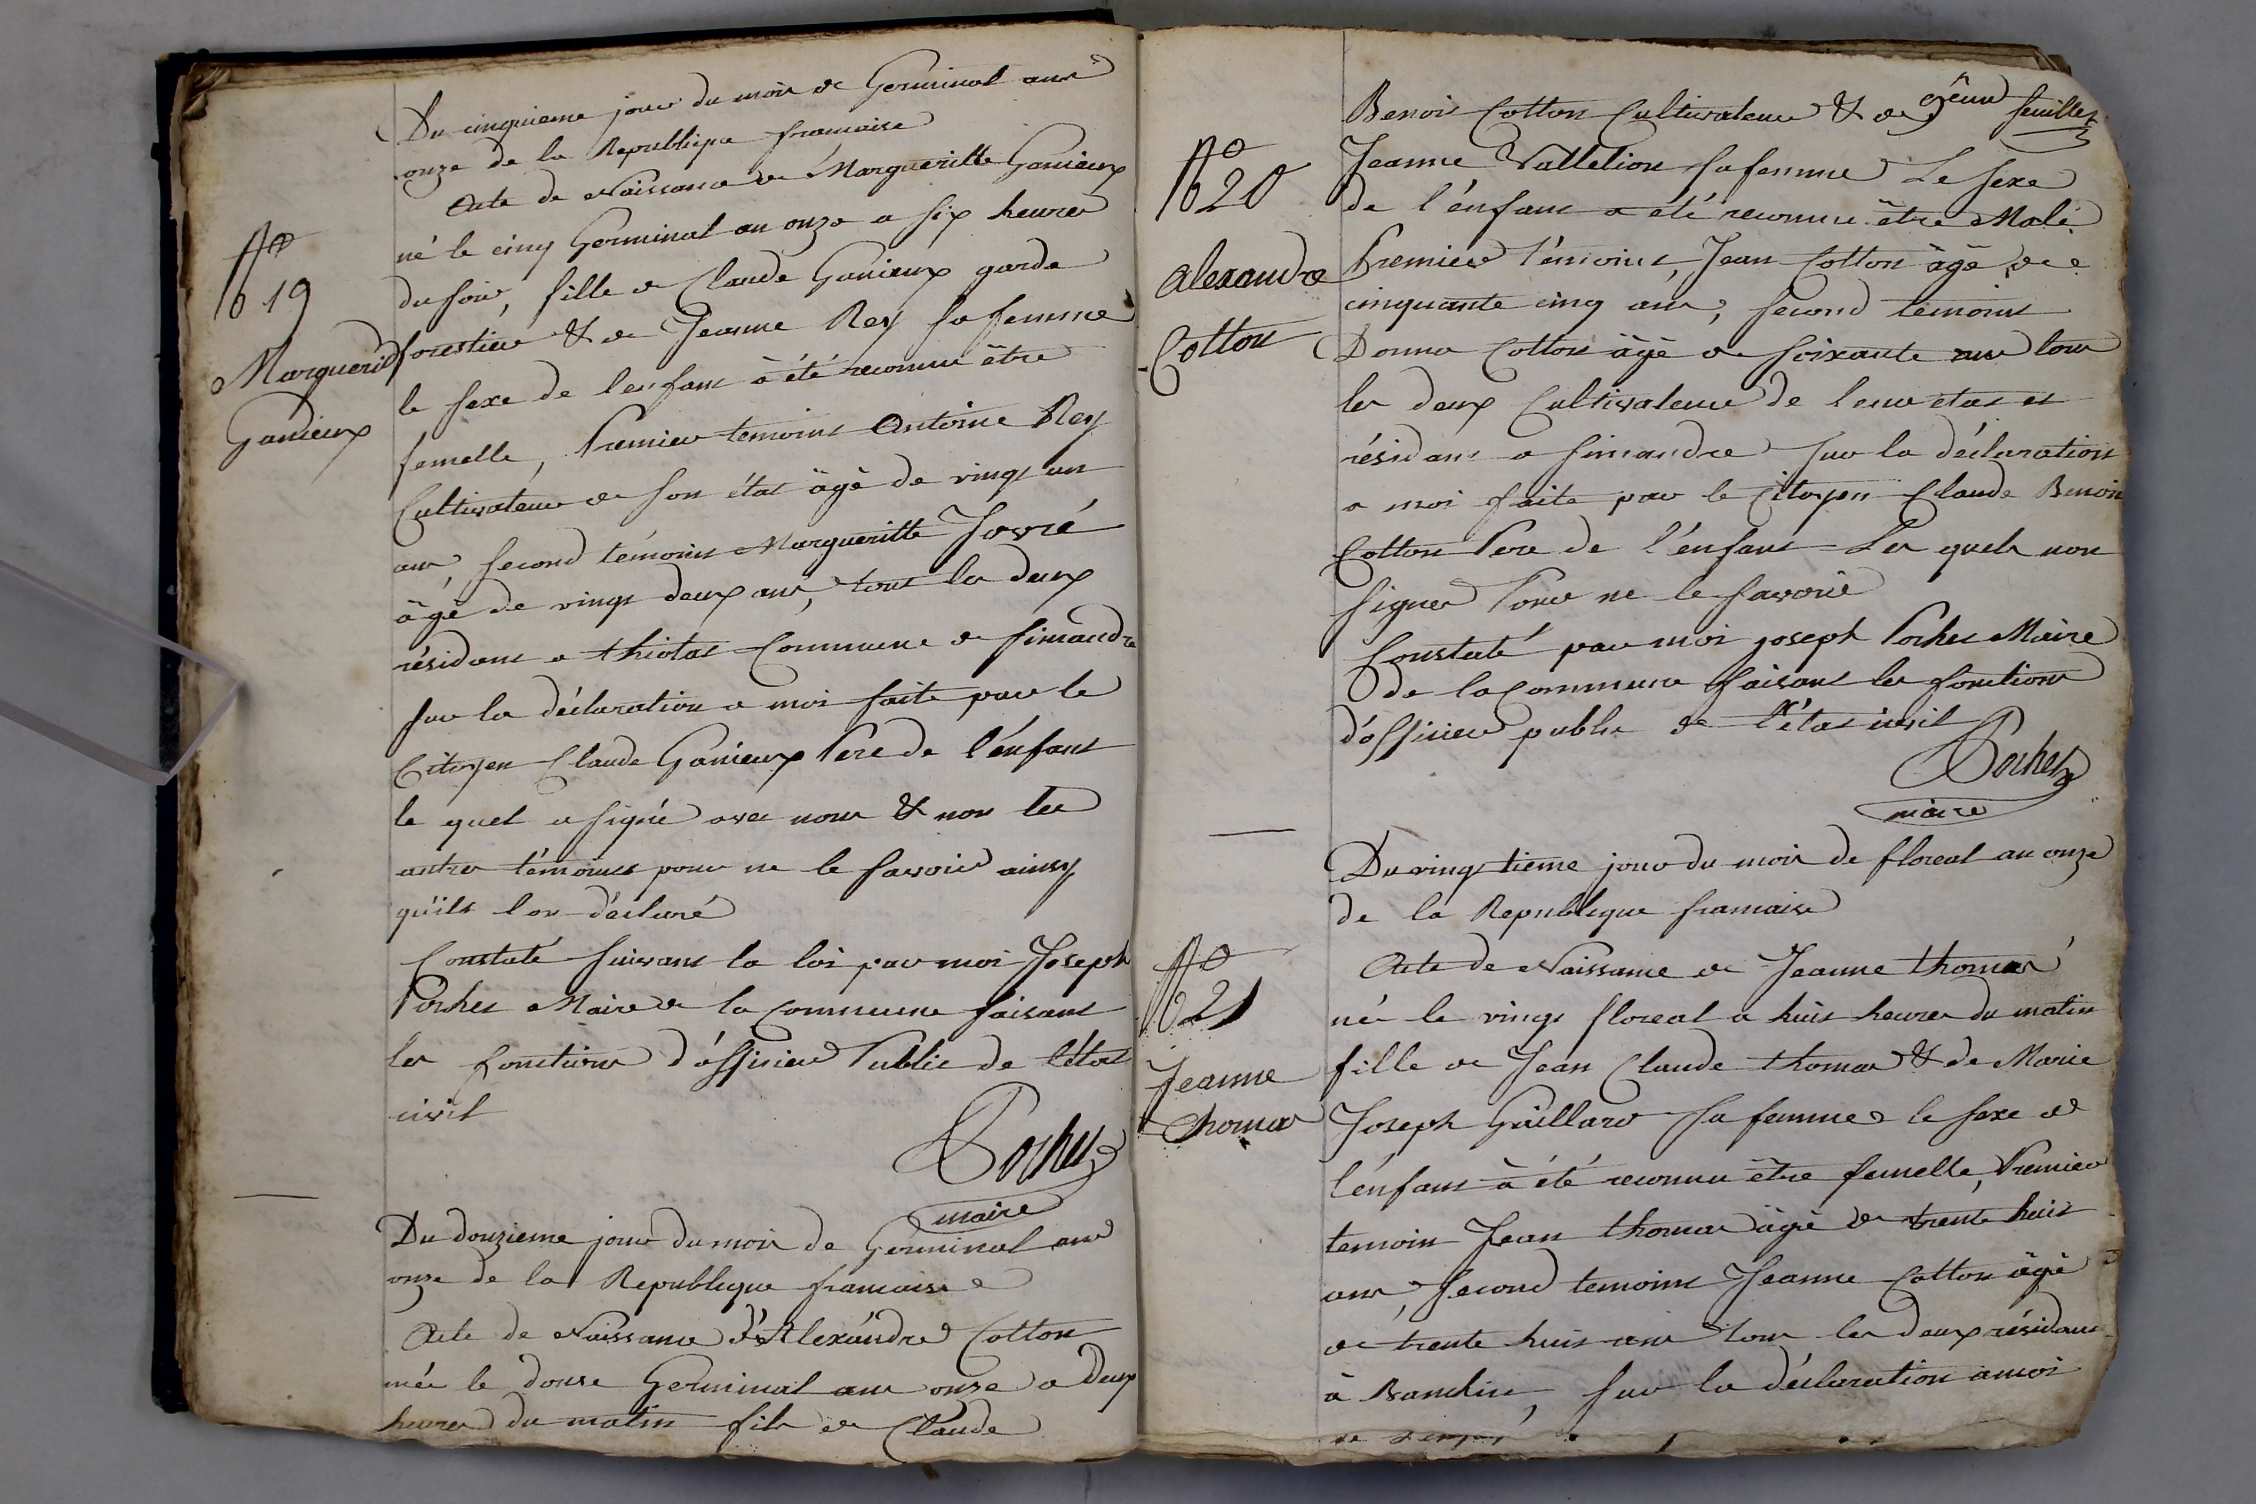 Du cinquieme jour du mois de Germinal ans
onze de la Republique francaise
Acte de Naissance de Margueritte Ganieux
né le cinq Germinal an onze a six heures
du soir, fille de Claude Ganieux garde
forestier & de Jeanne Rey sa femme
le sexe de lenfans à été reconnu être
femelle, Premier temoins Antoine Rey
Cultivateur de son état âgé de vingt un
ans, second témoins Margueritte
âgé de vingt deux ans, tous les deux
résidans a thiolas Commune de Simandre
sur la déclaration a moi faite par le
Citoyen Claude Ganieux Pere de l'énfans
le quel a signé avec nous & non les
autres témoins pour ne le savoir ainsy
qu'ils l'on déclaré
Constaté suivans la loi par moi Joseph
Porhes Maire de la commune faisans
les fonctions d'officier Public de l'état
civil
Porhes
maire
Du douzieme jour du mois de Germinal ans
onze de la Republique francaise
Acte de Naissance d'Alexandre Cotton
née le douze Germinal ans onze a deux
heures du matin fils de Claude
No
19
Marguerite
Ganieux
9eme feuillet
Benois Cotton Cultivateur & de
Jeanne Valletion sa femme Le sexe
de l'énfans a été reconnu être Male
Premier témoins, Jean Cotton âgé de
cinquante cinq ans, second temoins
Donna Cotton âgé de soixante ans tous
les deux Cultivateurs de leur état et
résidans a simandre sur la déclaration
a moi faite par le Citoyen Claude Benois
Cotton Pere de l'énfans Les quels non
signer Pour ne le savoire
Constaté par moi joseph Porhes Maire
de la commune faisans les fonctions
d'officier public de l'état civil
Porhes
maire
No
20
Alexandre
Cotton
Du vingtieme jour du mois de floreal an onze
de la Republique francaise
Acte de Naissance de Jeanne thomas
née le vingt floreal a huit heures du matin
fille de Jean Claude thomas & de Marie
Joseph Gaillard sa femme le sexe de
l'énfans à été reconnu être femelle, Premier
temoin Jean thomas âgé de trente huit
ans, second temoins Jeanne Cotton âgé
de trente huit ans tous les deux résidans
à, sur la déclaration a moi
No
21
Jeanne
thomas